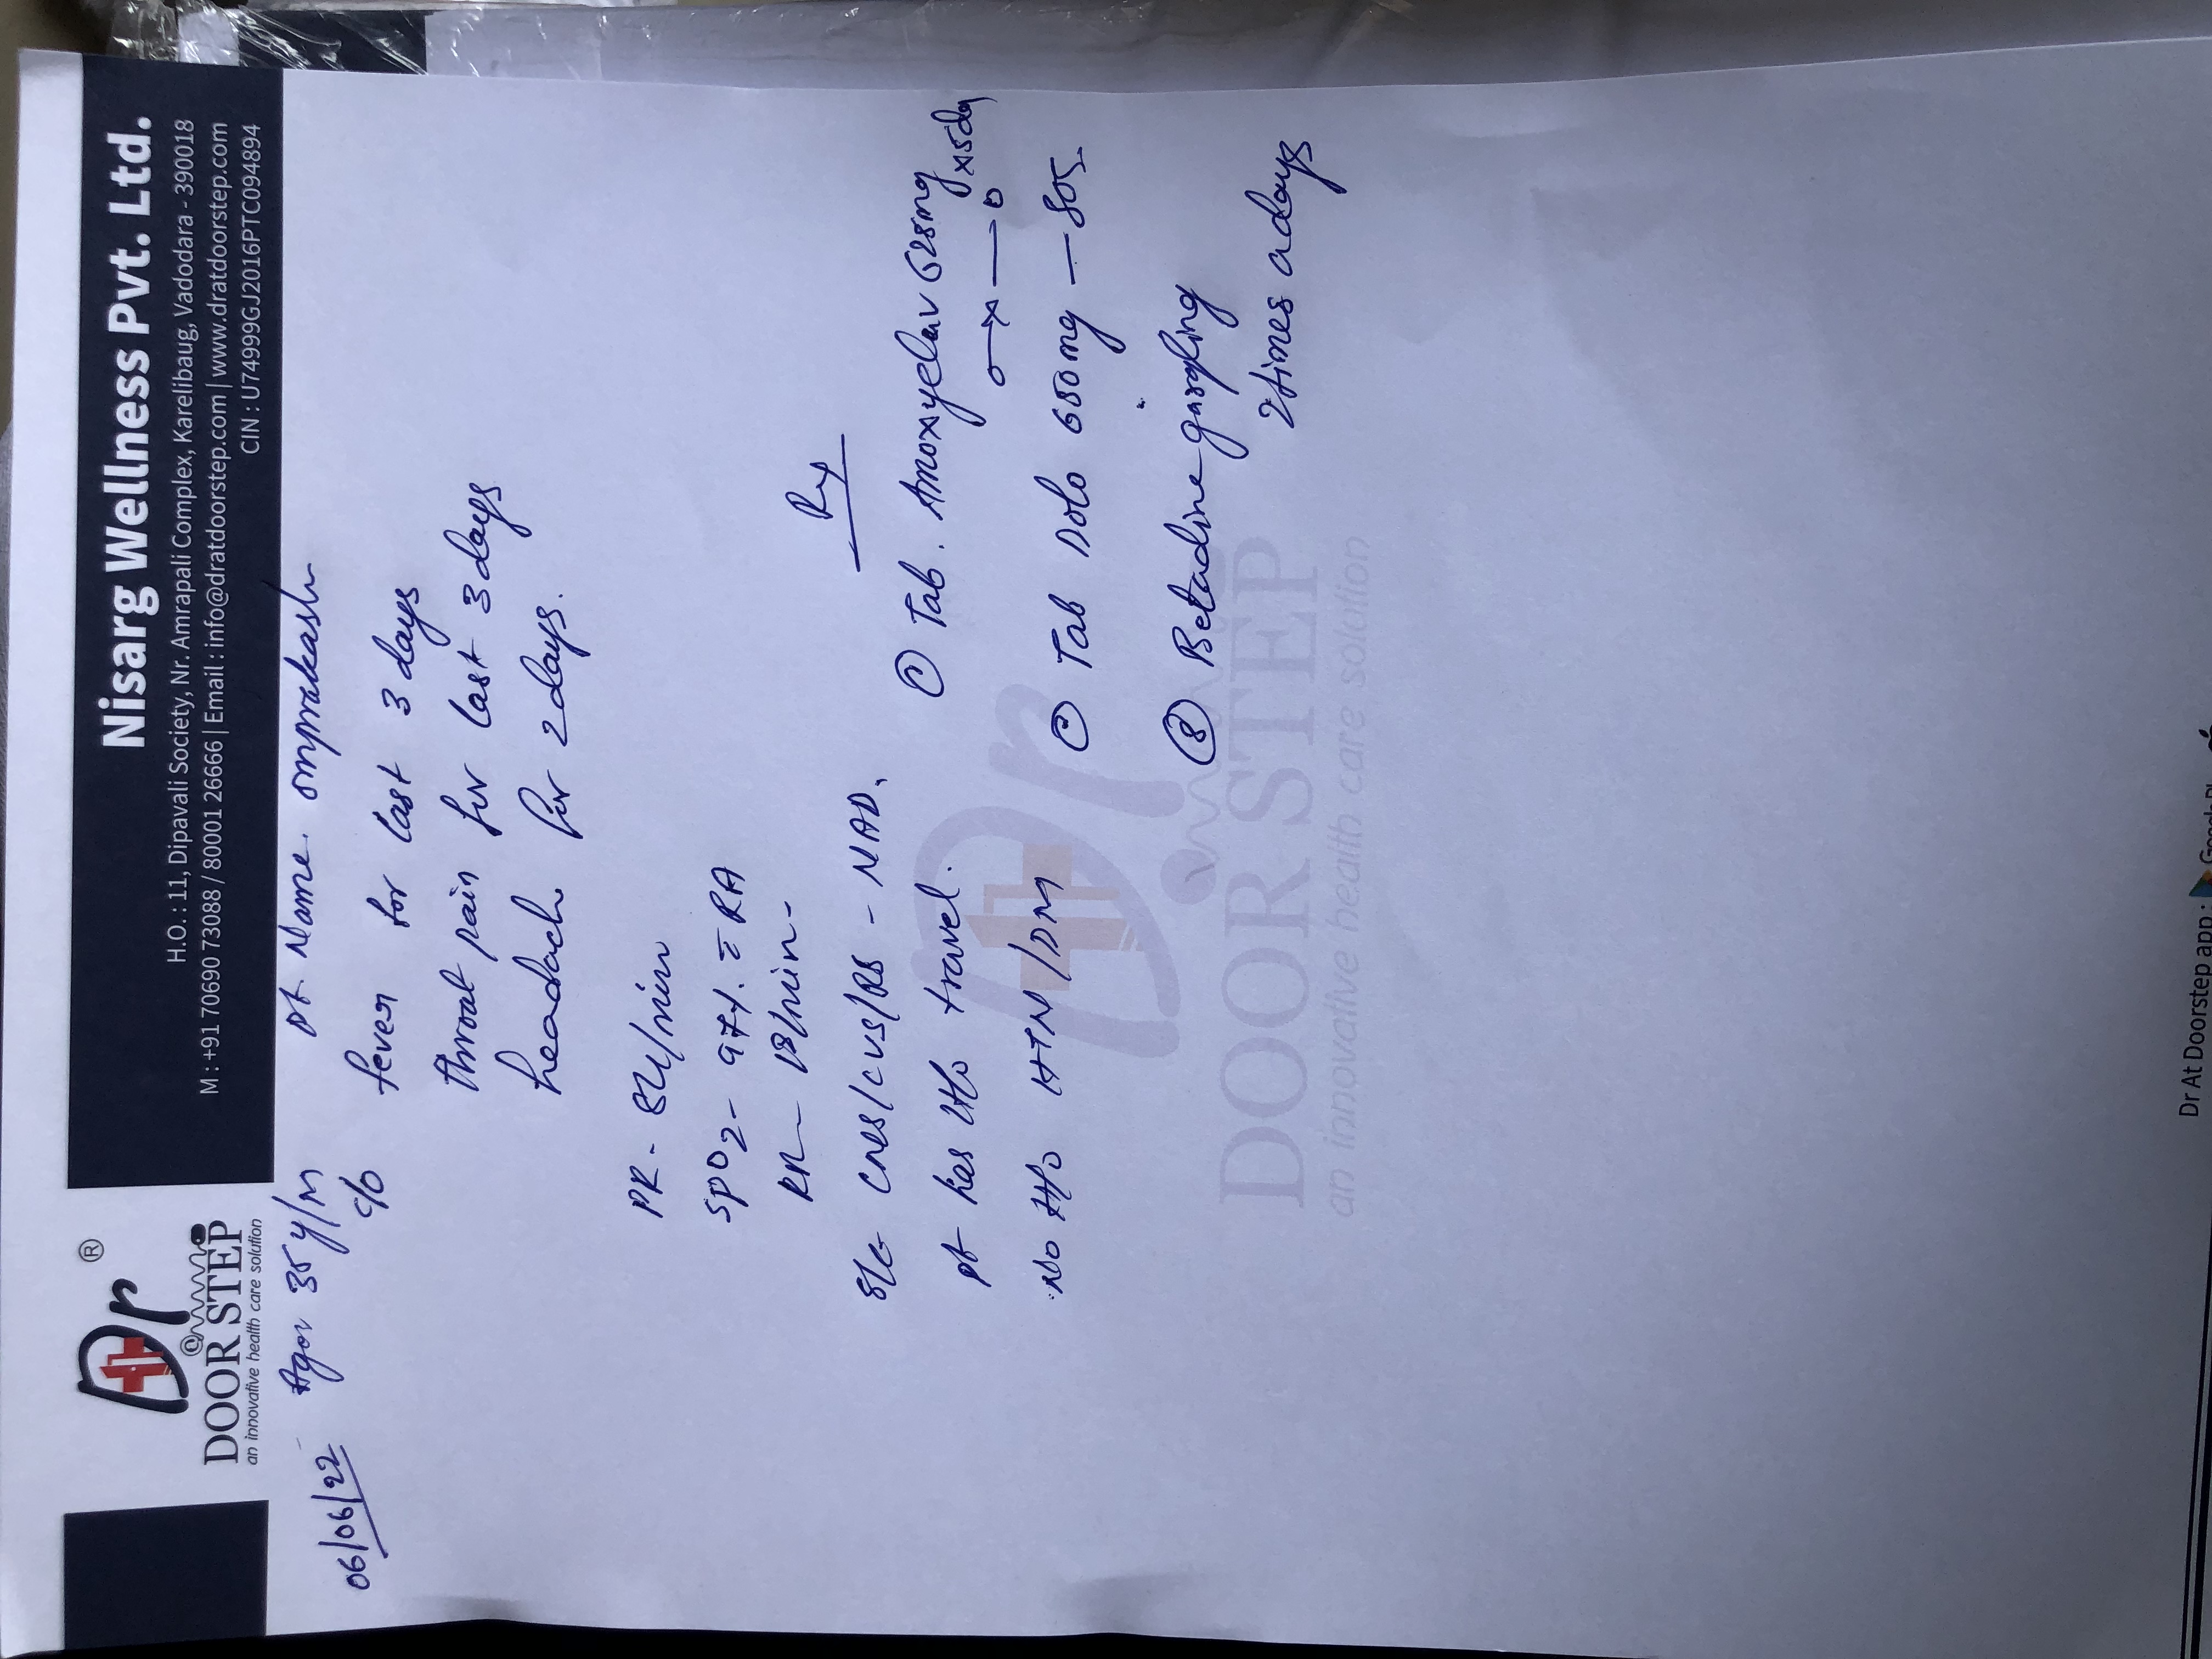 Dr ®
DOOR STEP
an innovative health care solution
Nisarg Wellness Pvt. Ltd.
H.O. : 11, Dipavali Society, Nr. Amrapali Complex, Karelibaug, Vadodara - 390018
M : +91 70690 73088 / 80001 26666 | Email : info@dratdoorstep.com | www.dratdoorstep.com
CIN : U74999GJ2016PTC094894
06/06/22
35y/M pt. Name. omprakash
c/o fever for last 3 days
throat pain for last 3 days
headach for 2 days.
PR - 84/min
SPO2 - 97%. RA
RR - 18/min -
S/E CNS/CVS/RS - NAD.
pt has H/o travel.
No H/o HTN/DM
Rx
① Tab. Amoxyclav 625mg
x5day
② Tab Dolo 650mg — SOS
③ Betadine gargling
2 times a days
Dr
DOOR STEP
an innovative health care solution
Dr At Doorstep app :